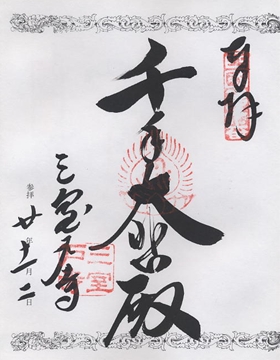 奉拝
千手大悲殿
三室戸寺
参拝 廿年十一月二日
三室戸寺